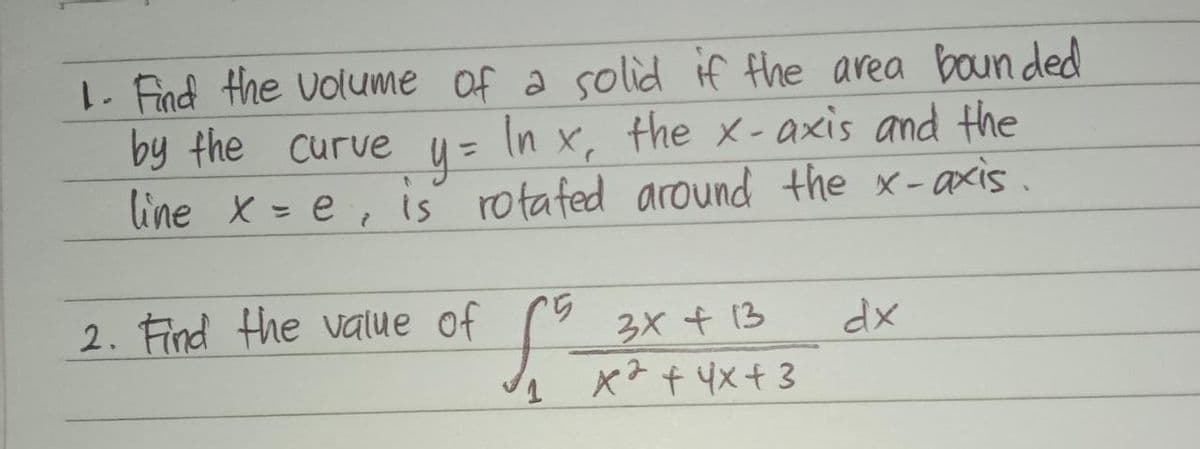 1. Find the volume of a solid if the area bounded
by the curve y = ln x, the x-axis and the
line x = e, is rotated around the x-axis.
2. Find the value of ∫₁⁵ (3x + 13)/(x² + 4x + 3) dx